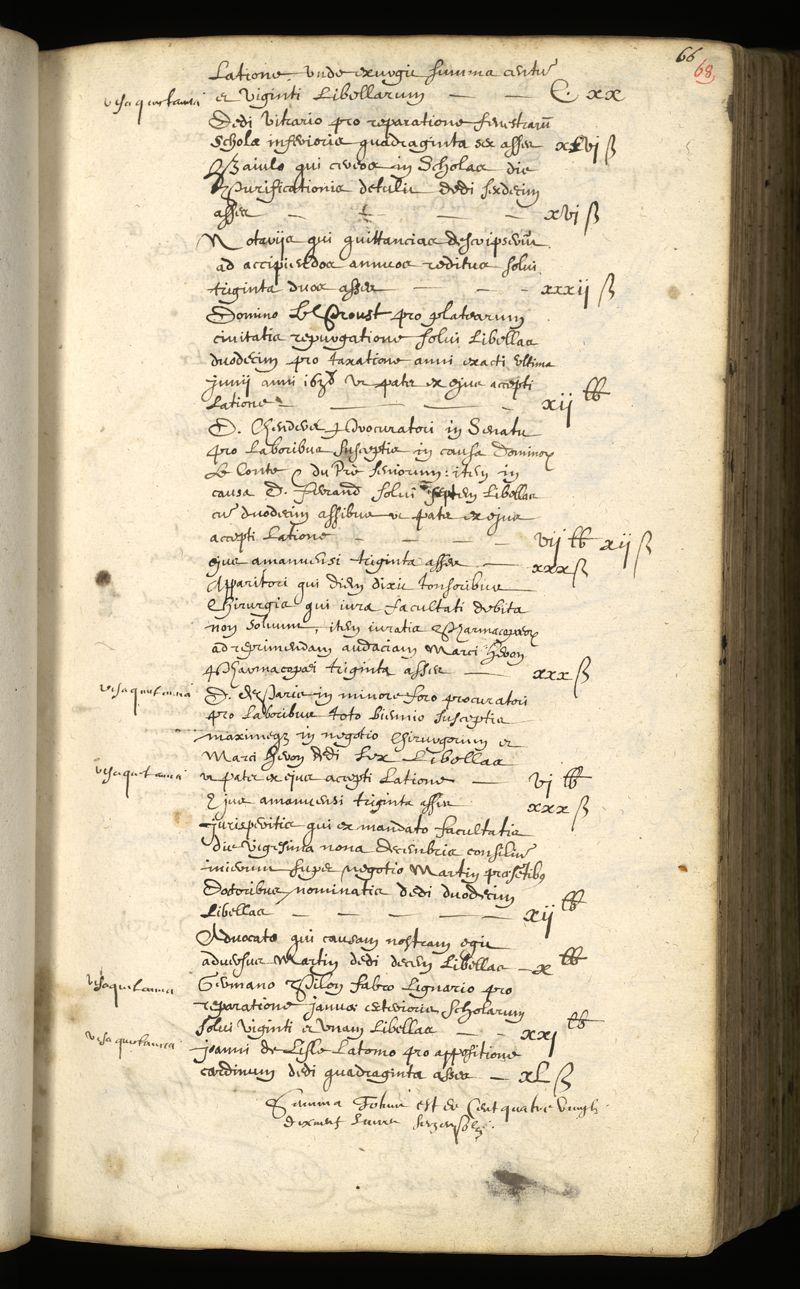 66
68
Latione, unde exurgit summa centũ
visa quictantia et viginti Libellarum — — C. xx
Dedi vitrario pro reparatione fenestrarũ
Scholæ inferioris quadraginta sex asses xLvj ß
Baiulo qui cereos in Scholas die
Purificationis detulit dedi sexdecim
asses — — — — xvj ß
Notarijs qui quittancias descripserũt
ad accipiendos annuos reditus solui
triginta duos asses — — — xxxij ß
Domino Le Proust pro platearum
ciuitatis repurgatione solui Libellas
duodecim pro taxatione anni exacti ultima
junij anni 1638 ut patet ex ejus accepti
Latione — — — xij ℔
D. procuratori in Senatu
pro Laboribus susceptis in causa Dominorꝝ
Le Conte & du Pré seniorum: item in
causa D. Ferrand solui septem Libellas
cũ duodecim assibus ut patet ex ejus
accepti Latione — — — — vij ℔ xij ß
ejus amanuensi triginta asses — xxx ß
Apparitori qui diem dixit tonsoribus
Chirurgis qui iura facultati debita
non soluunt, item iuratis Pharmacopœorꝝ
ad reprimendam audaciam Marci Hevon
Pharmacopœi triginta asses — xxx ß
visa quictancia D. des Paris in minore foro procuratori
pro Laboribus toto biennio susceptis
maximeqȝ in negotio Chirurgorum et
Marci Hevon dedi sex Libellas
visa quictantia ut patet ex ejus accepti Latione — vj ℔
Ejus amanuensi triginta asses xxx ß
Jurisperitis qui ex mandato facultatis
die vigesima nona decembris consiliũ
inierunt super negotio Martin præsẽtibȝ
Doctoribus nominatis dedi duodecim
Libellas — — — — — xij ℔
Advocato qui causam nostram egit
aduersus Martin dedi decem Libellas — x ℔
visa quictantia Germano Pilon fabro Lignario pro
reparatione januæ exterioris Scholarum
solui viginti et unam Libellas — — xxj ℔
visa quictantia joanni de Lisle Latomo pro appositione
cardinum dedi quadraginta asses — xL ß
Summa Totius est de Cent quatre vingts
dixneuf Livres